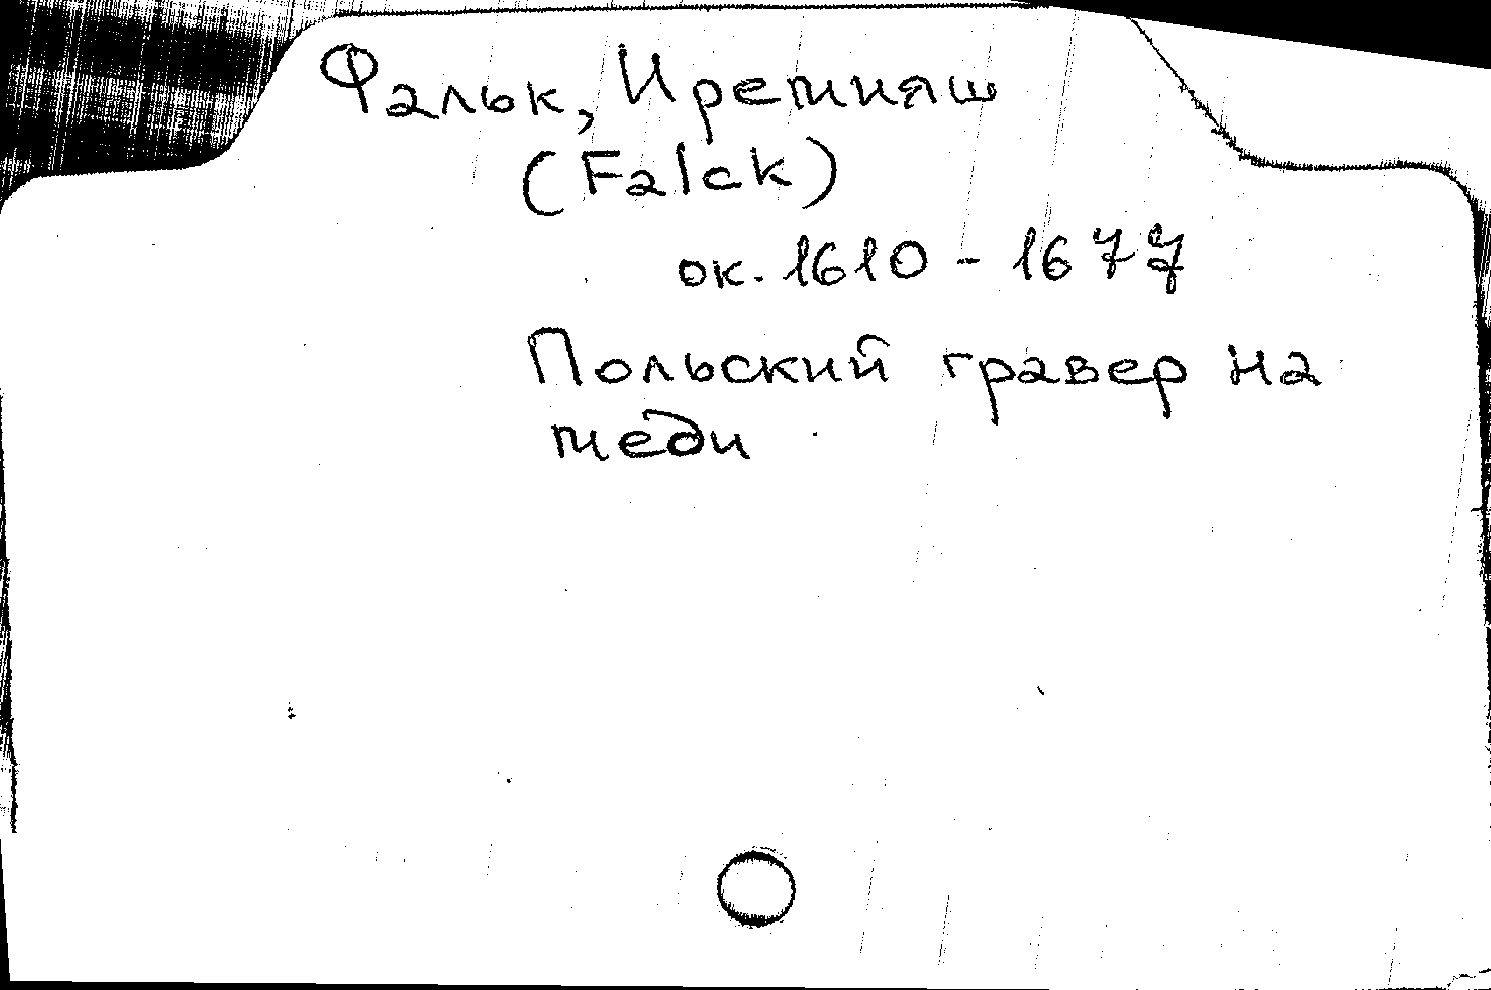 Фальк, Иремияш
(Falck)
ок. 1610 - 1677
Польский гравер на
меди